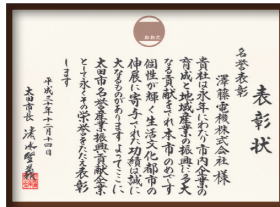 表彰状
名誉表彰
澤藤電機株式会社 様
貴社は永年にわたり市内企業の
育成と地域産業の振興に多大
なる貢献をされ本市のめざす
個性が輝く生活文化都市の
伸展に寄与された功績は誠に
大なるものがあります よってここに
太田市名誉産業振興貢献企業
として永くその栄誉をたたえ表彰
します
平成三十年十二月十四日
太田市長 清水聖義